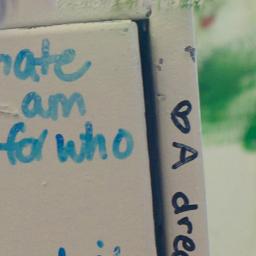 hate
am
for who
A dre